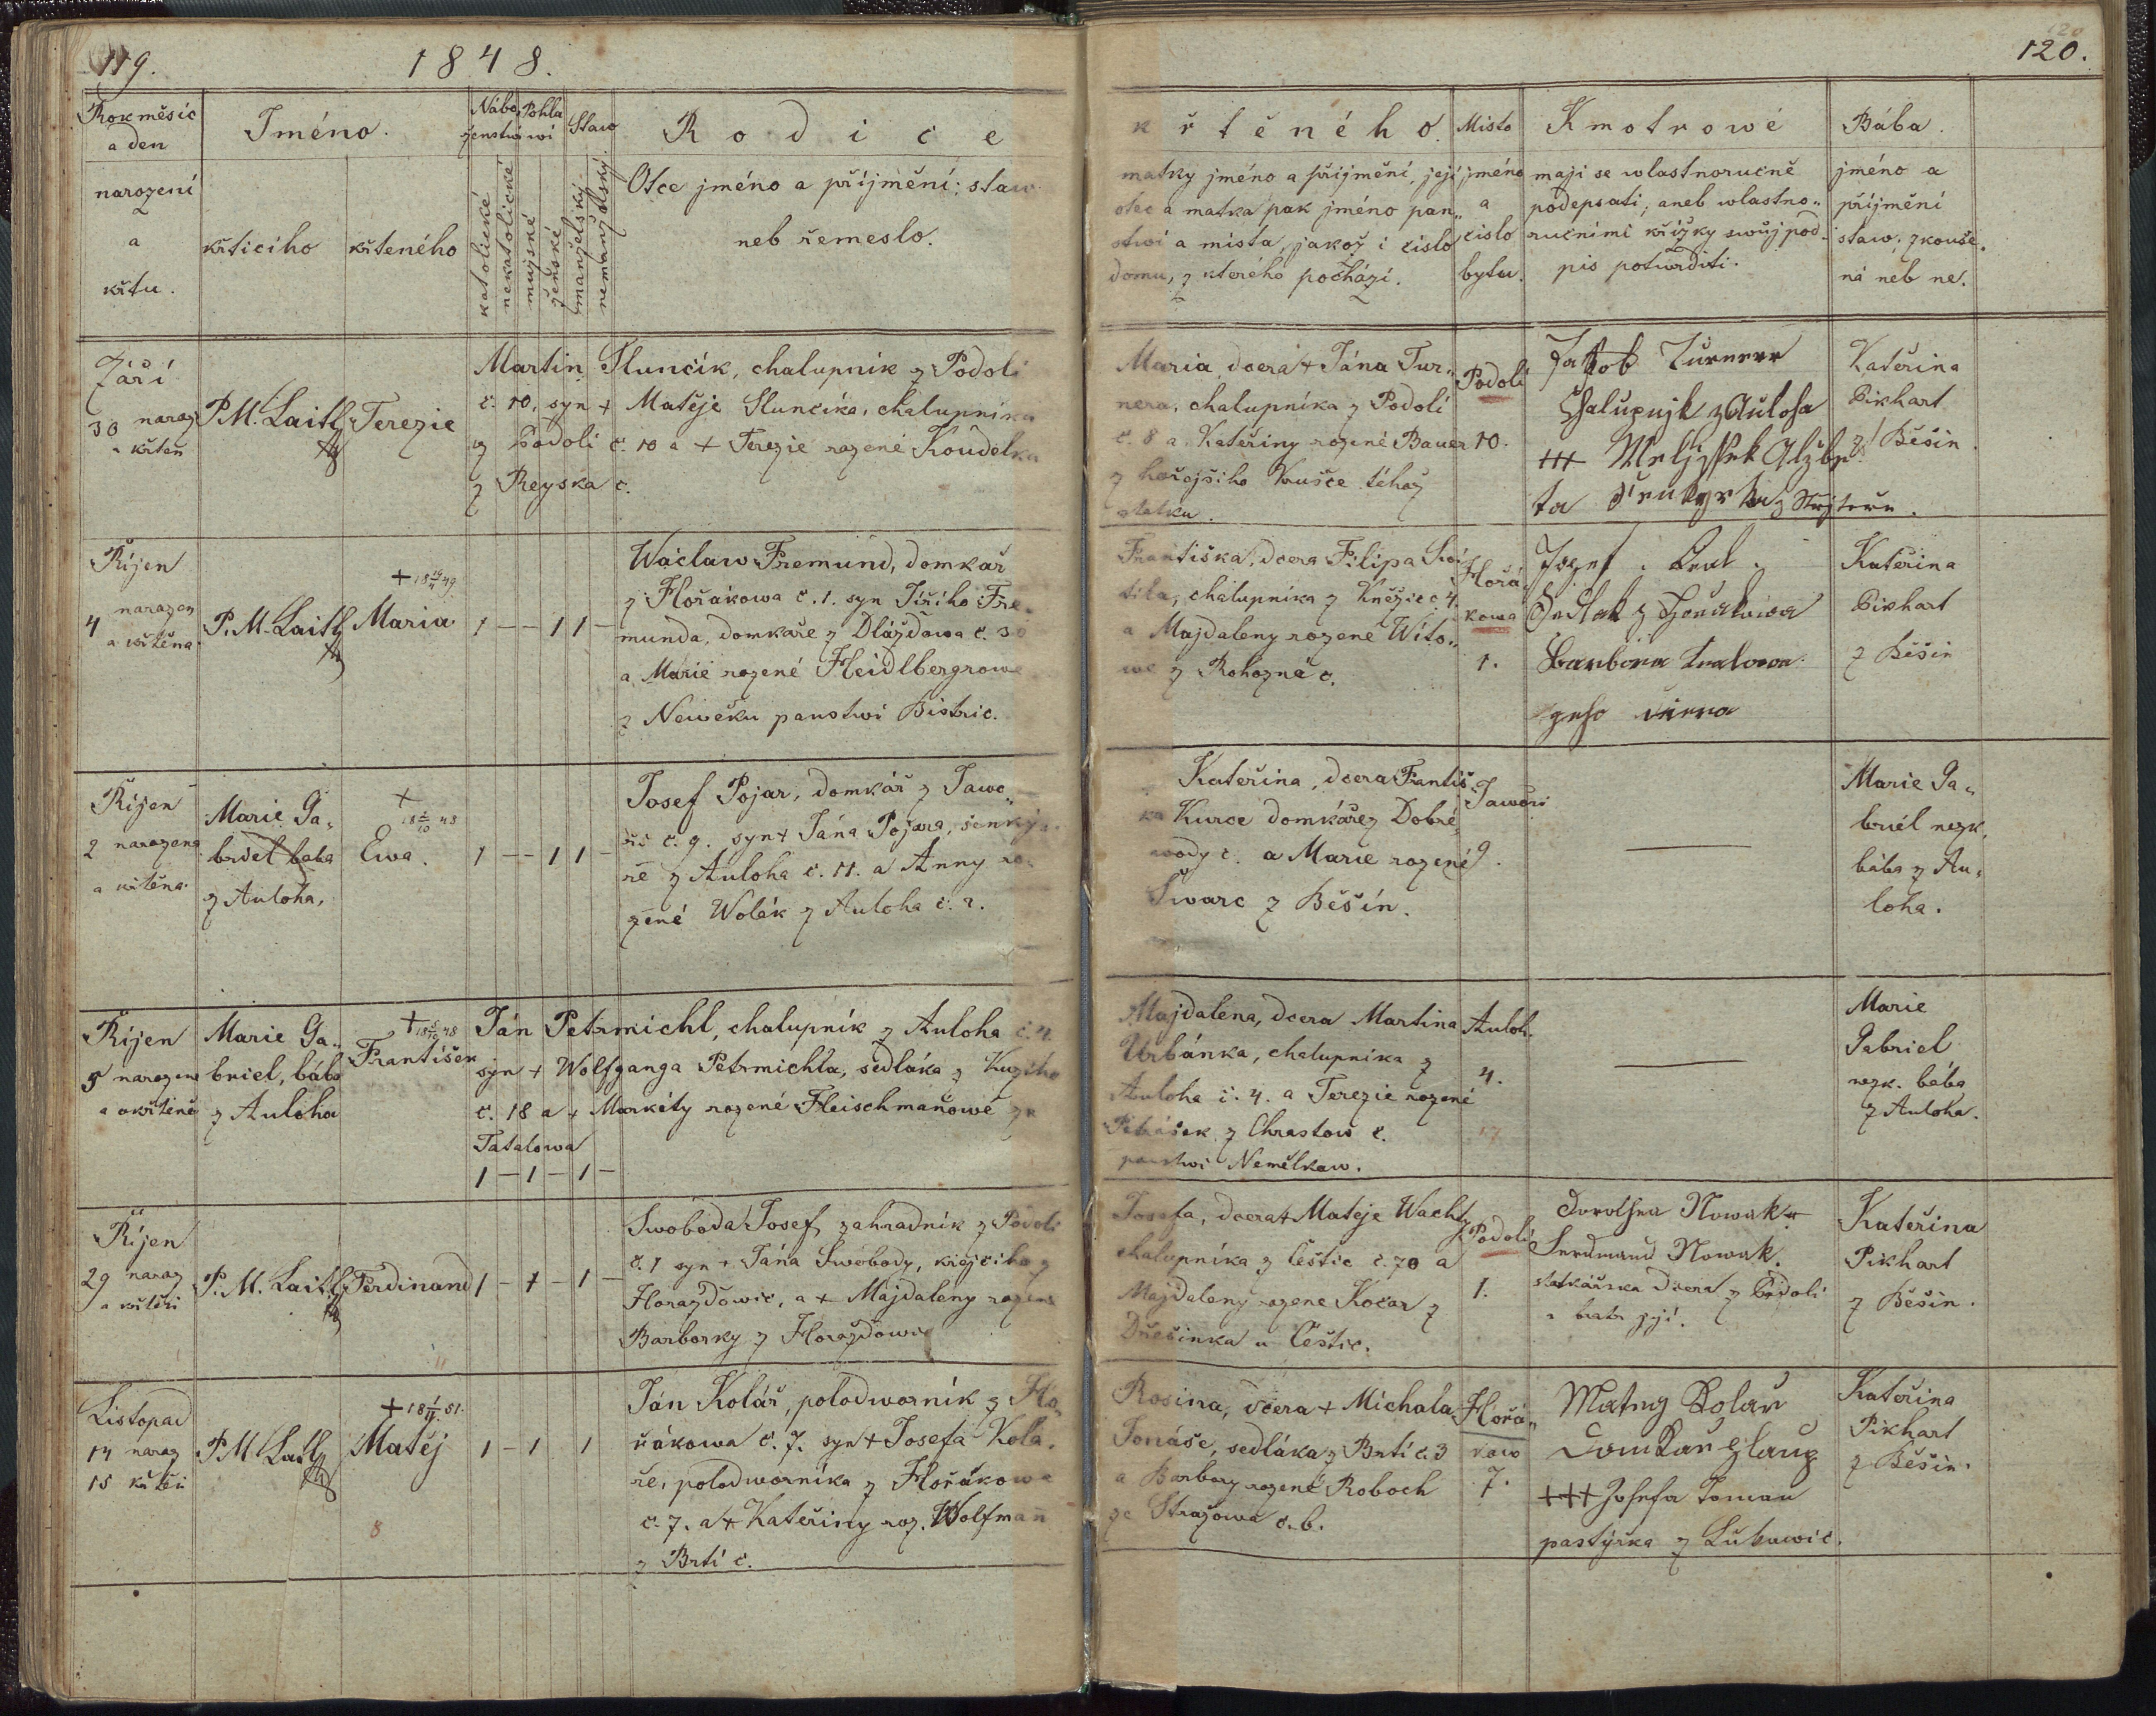 119.
1848.
Rok měsíc
a den
narození
a
křtu.
Jméno.
křticího
křteného
Nábo
ženstwí
Pohla
wí
Staw
katolické
nekatolické
mužské
ženské
manželský
nemanželský
Rodice
Otce jméno a příjmění; staw
neb řemeslo.
Září
30 naroz
a křten
P.M. Laitl
Terezie
Martin Slunčík, chalupník z Podolí
č. 10, syn + Matěje Slunčíka, chalupníka
z Podolí č. 10 a + Terezie rozené Koudelka
z Reyska č.
Říjen
4 narozen
a křtěna
P. M. Laitl
+ 18 49
Maria
1 — — 1 1 —
Wáclaw Fremund, domkář
z Hořákowa č. 1. syn Jiřího Fre-
munda, domkáře z Dlážďowa č. 30
a Marie rozené Heidlbergrowe
z Newěku panstwí Bistric.
Říjen
2 narozena
a křtěna
Marie Ga„
briel baba
z Auloha,
+
18 2/10 48
Ewa.
1 — — 1 1 —
Josef Pojar, domkář z Jawo„
ří č. 9. syn + Jána Pojara, šenký„
ře z Auloha č. 11. a Anny ro„
zené Wolák z Auloha č. 2.
Říjen
5 narozen
a okřtěně
Marie Ga„
briel, bába
z Auloha
+ 18 48
František
Ján Petrmichl, chalupník z Auloha č. 4.
syn + Wolfganga Petrmichla, sedláka z
č. 18 a + Markéty rozené Fleischmanowé z
Tatalowa
1 — 1 — 1 —
Říjen
29 naroz
a křtěn
P. M. Laitl
Ferdinand
1 — 1 — 1 —
Swoboda Josef, zahradník z Podolí
č. 1 syn + Jána Swobody, krejčího z
Horazdowic, a + Majdaleny rozené
Barborky z Horazdowic
Listopad
14 naroz
15 křtěn
P. M. Laitl
+ 18 51.
Matěj
1 — 1 1
8
Ján Kolář, polodworník z Ho„
řákowa č. 7. syn + Josefa Kolá„
ře, polodworníka z Hořákowa
č. 7. a + Kateřiny roz. Wolfman
z Brtí č.
120
120.
křtěného.
matky jméno a příjmění, její
otec a matka pak jméno pan„
stwí a místa, jakož i číslo
domu, z kterého pochází.
Místo
jméno
a
číslo
bytu.
Kmotrowé
mají se wlastnoručně
podepsati; aneb wlastno„
ručními křížky swůj pod„
pis potwrditi.
Bába.
jméno a
příjmění
staw; zkouše„
ná neb ne.
Maria, dcera + Jána Tur„
nera, chalupníka z Podolí
č. 8 a Kateřiny rozené Bauer
z hořejšího Krušce téhož
statku.
Podolí
10.
Jakob Turner
Chalupnik z Auloha
+++ Alžbě
ta
Kateřina
Pikhart
z Běšin.
Františka, dcera Filipa
chalupníka z Kněžic č. 4
a Majdaleny rozené Wíto„
we z Rohozna č.
Hořá„
kowa
1.
Jozef Kral
Sedlak z Hořakowa
Barbora Kralowa
geho dcera
Kateřina
Pikhart
z Běšin
Kateřina, dcera Františ
ka Kurce domkáře z Dobré
wody č. a Marie rozené
Šwarc z Běšín.
Jaworí
9.
—
Marie Ga„
briel nezk.
bába z Au„
loha.
Majdalena, dcera Martina
Urbánka, chalupníka z
Auloha č. 4. a Terezie rozené
Petrášek z Chrastow č.
panstwi Nemělkaw.
Auloh.
4.
17
—
Marie
Gabriel
nezk. bába
z Auloha.
Josefa, dcera + Matěje
chalupníka z Čestic č. 70 a
Majdaleny rozene Kočar z
Dřešinka u Čestic.
Podolí
1.
Dorothea Nowak
Ferdinand Nowak.
statkářska dcera z Podolí
a bratr její.
Kateřina
Pikhart
z Běšin.
Rosina, dcera + Michala
Tomáše, sedláka z Brtí č. 3
a Barbory rozené Roboch
ze Strazowa č. b.
Hořá„
kow
7.
Matieg Kolař
Domkař z
+++ Josefa Toman
pastýřka z Lukawic.
Kateřina
Pikhart
z Běšin.